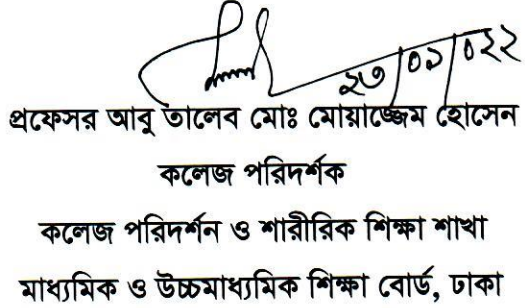 ২৩/০১/০২২
প্রফেসর আবু তালেব মোঃ মোয়াজ্জেম হোসেন
কলেজ পরিদর্শক
কলেজ পরিদর্শন ও শারীরিক শিক্ষা শাখা
মাধ্যমিক ও উচ্চমাধ্যমিক শিক্ষা বোর্ড, ঢাকা